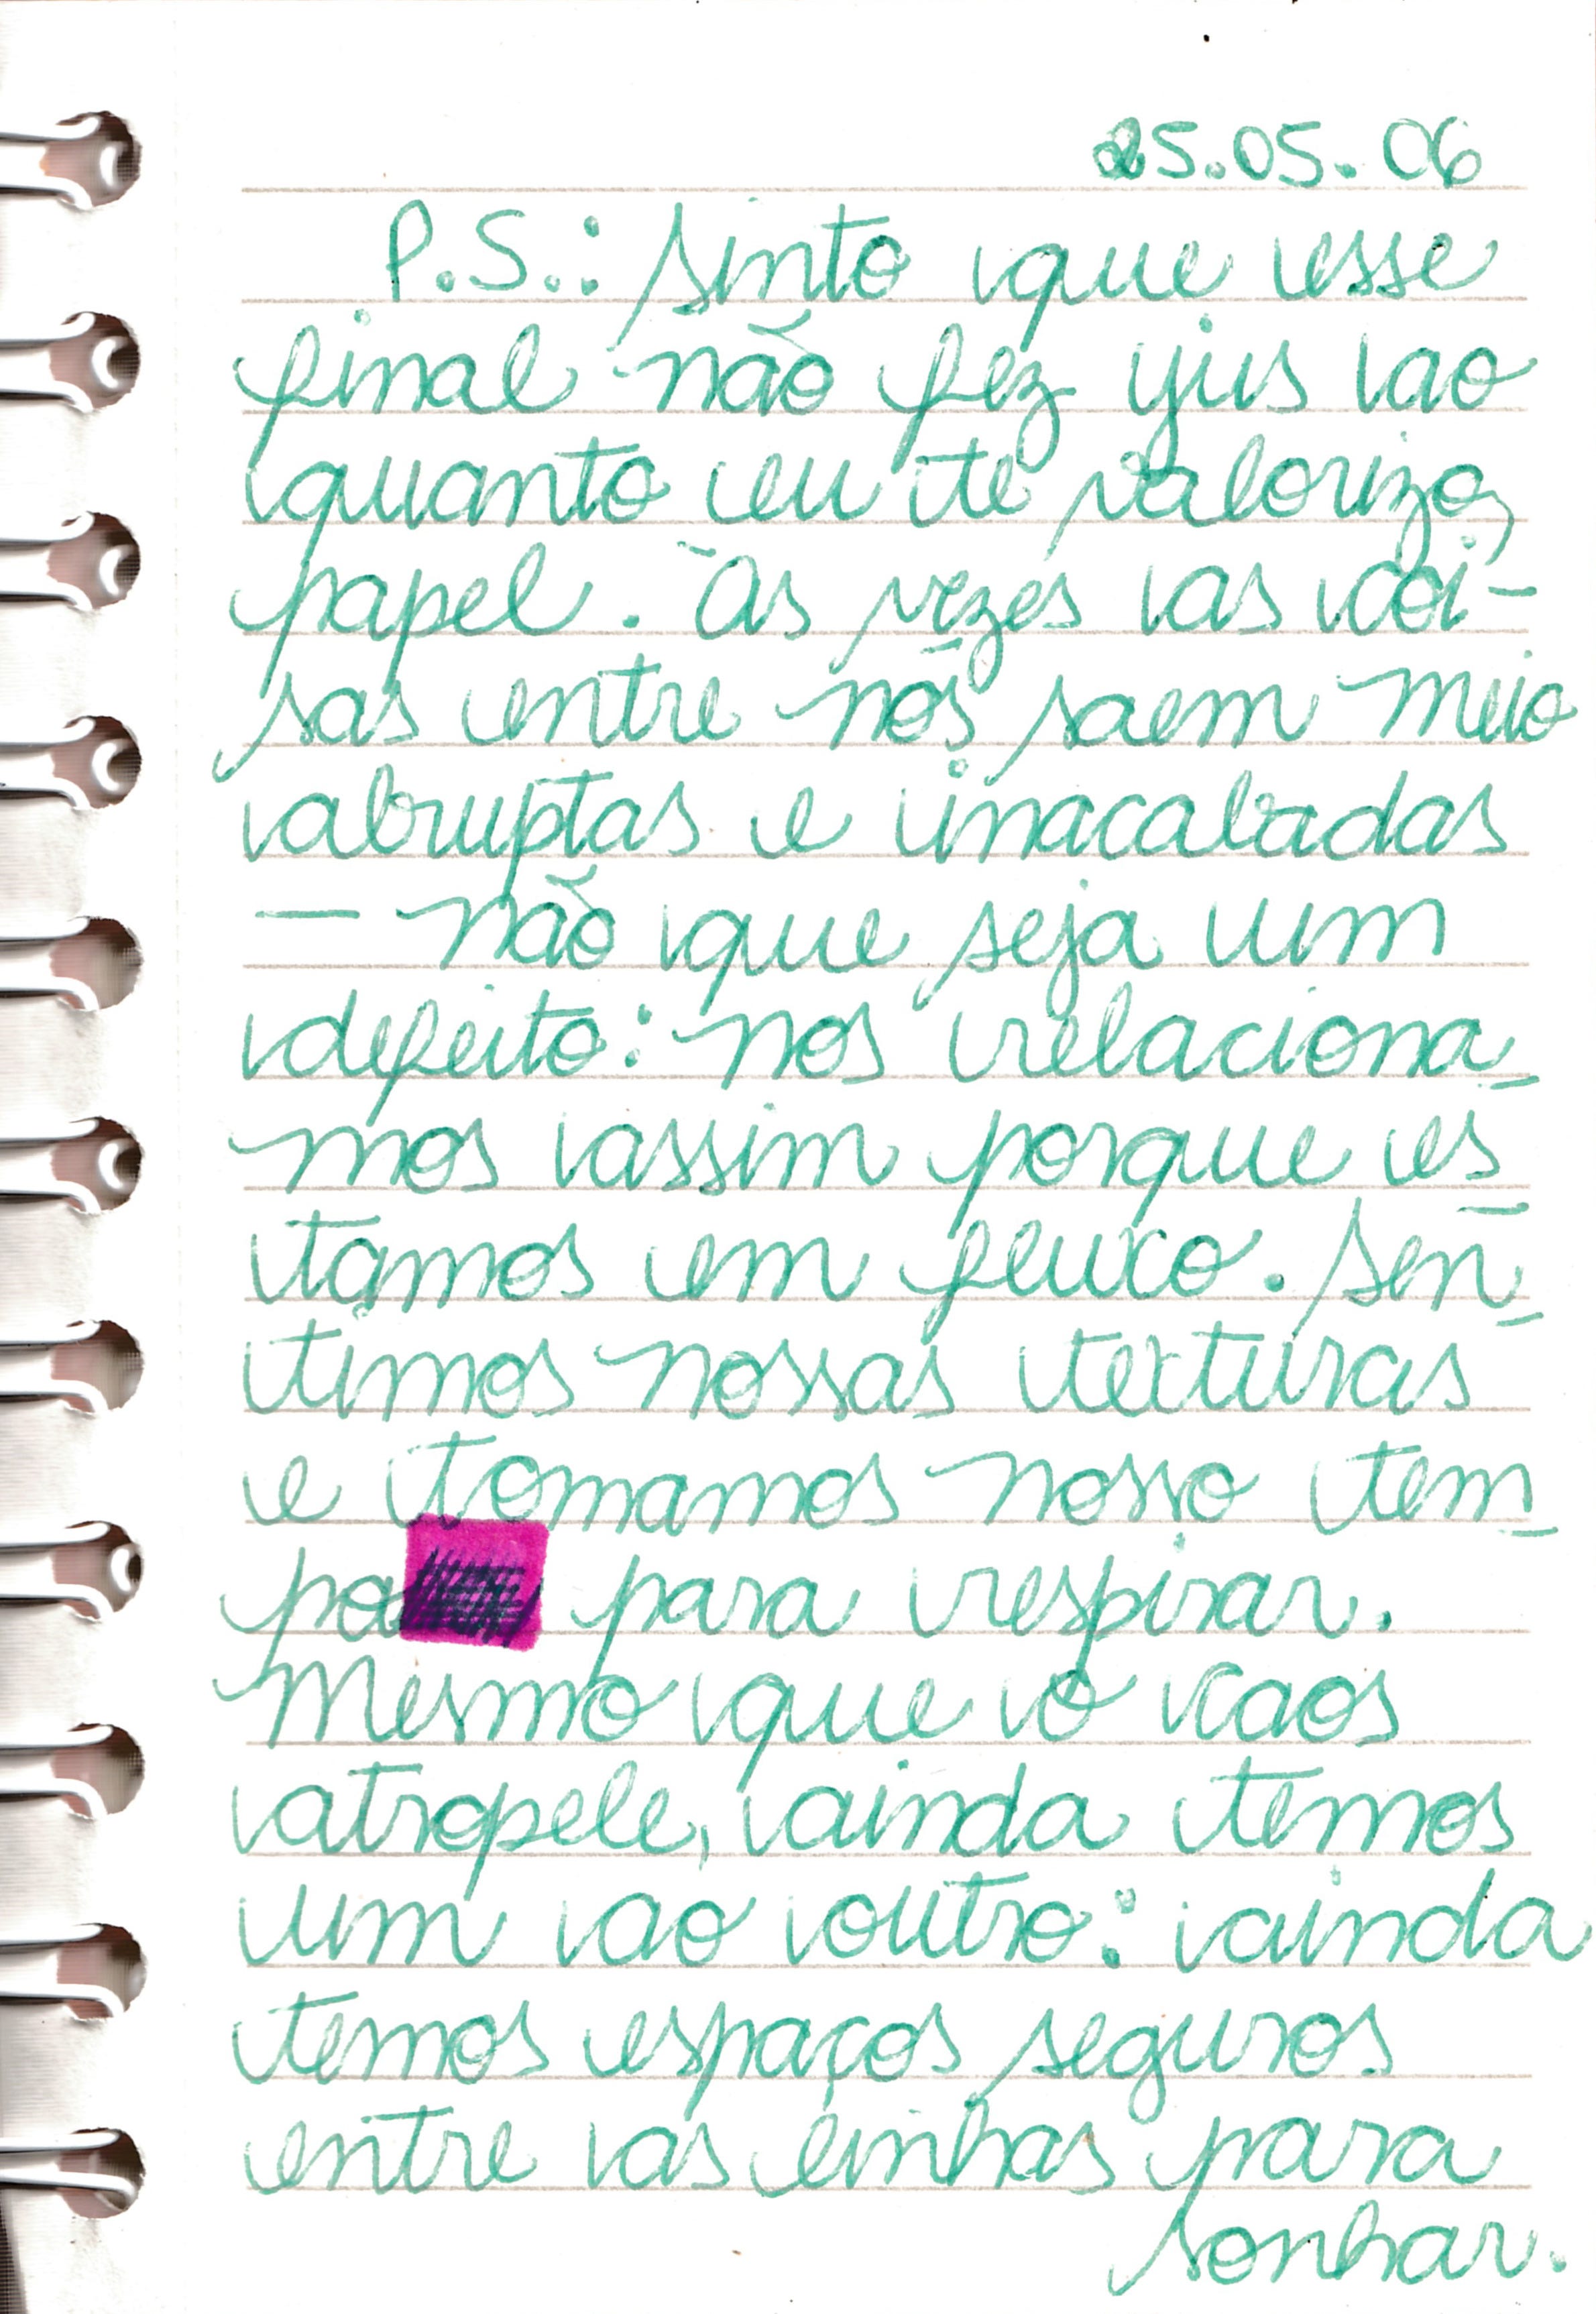 25.05.06
P.S.: sinto que esse
final não fez jus ao
quanto eu te valorizo,
papel. Às vezes as coi-
sas entre nós saem meio
abruptas e inacabadas
— não que seja um
defeito: nos relaciona-
mos assim porque es-
tamos em fluxo. Sen-
timos nossas texturas
e tomamos nosso tem-
po para respirar.
Mesmo que o caos
atropele, ainda temos
um ao outro: ainda
temos espaços seguros
entre as linhas para
sonhar.